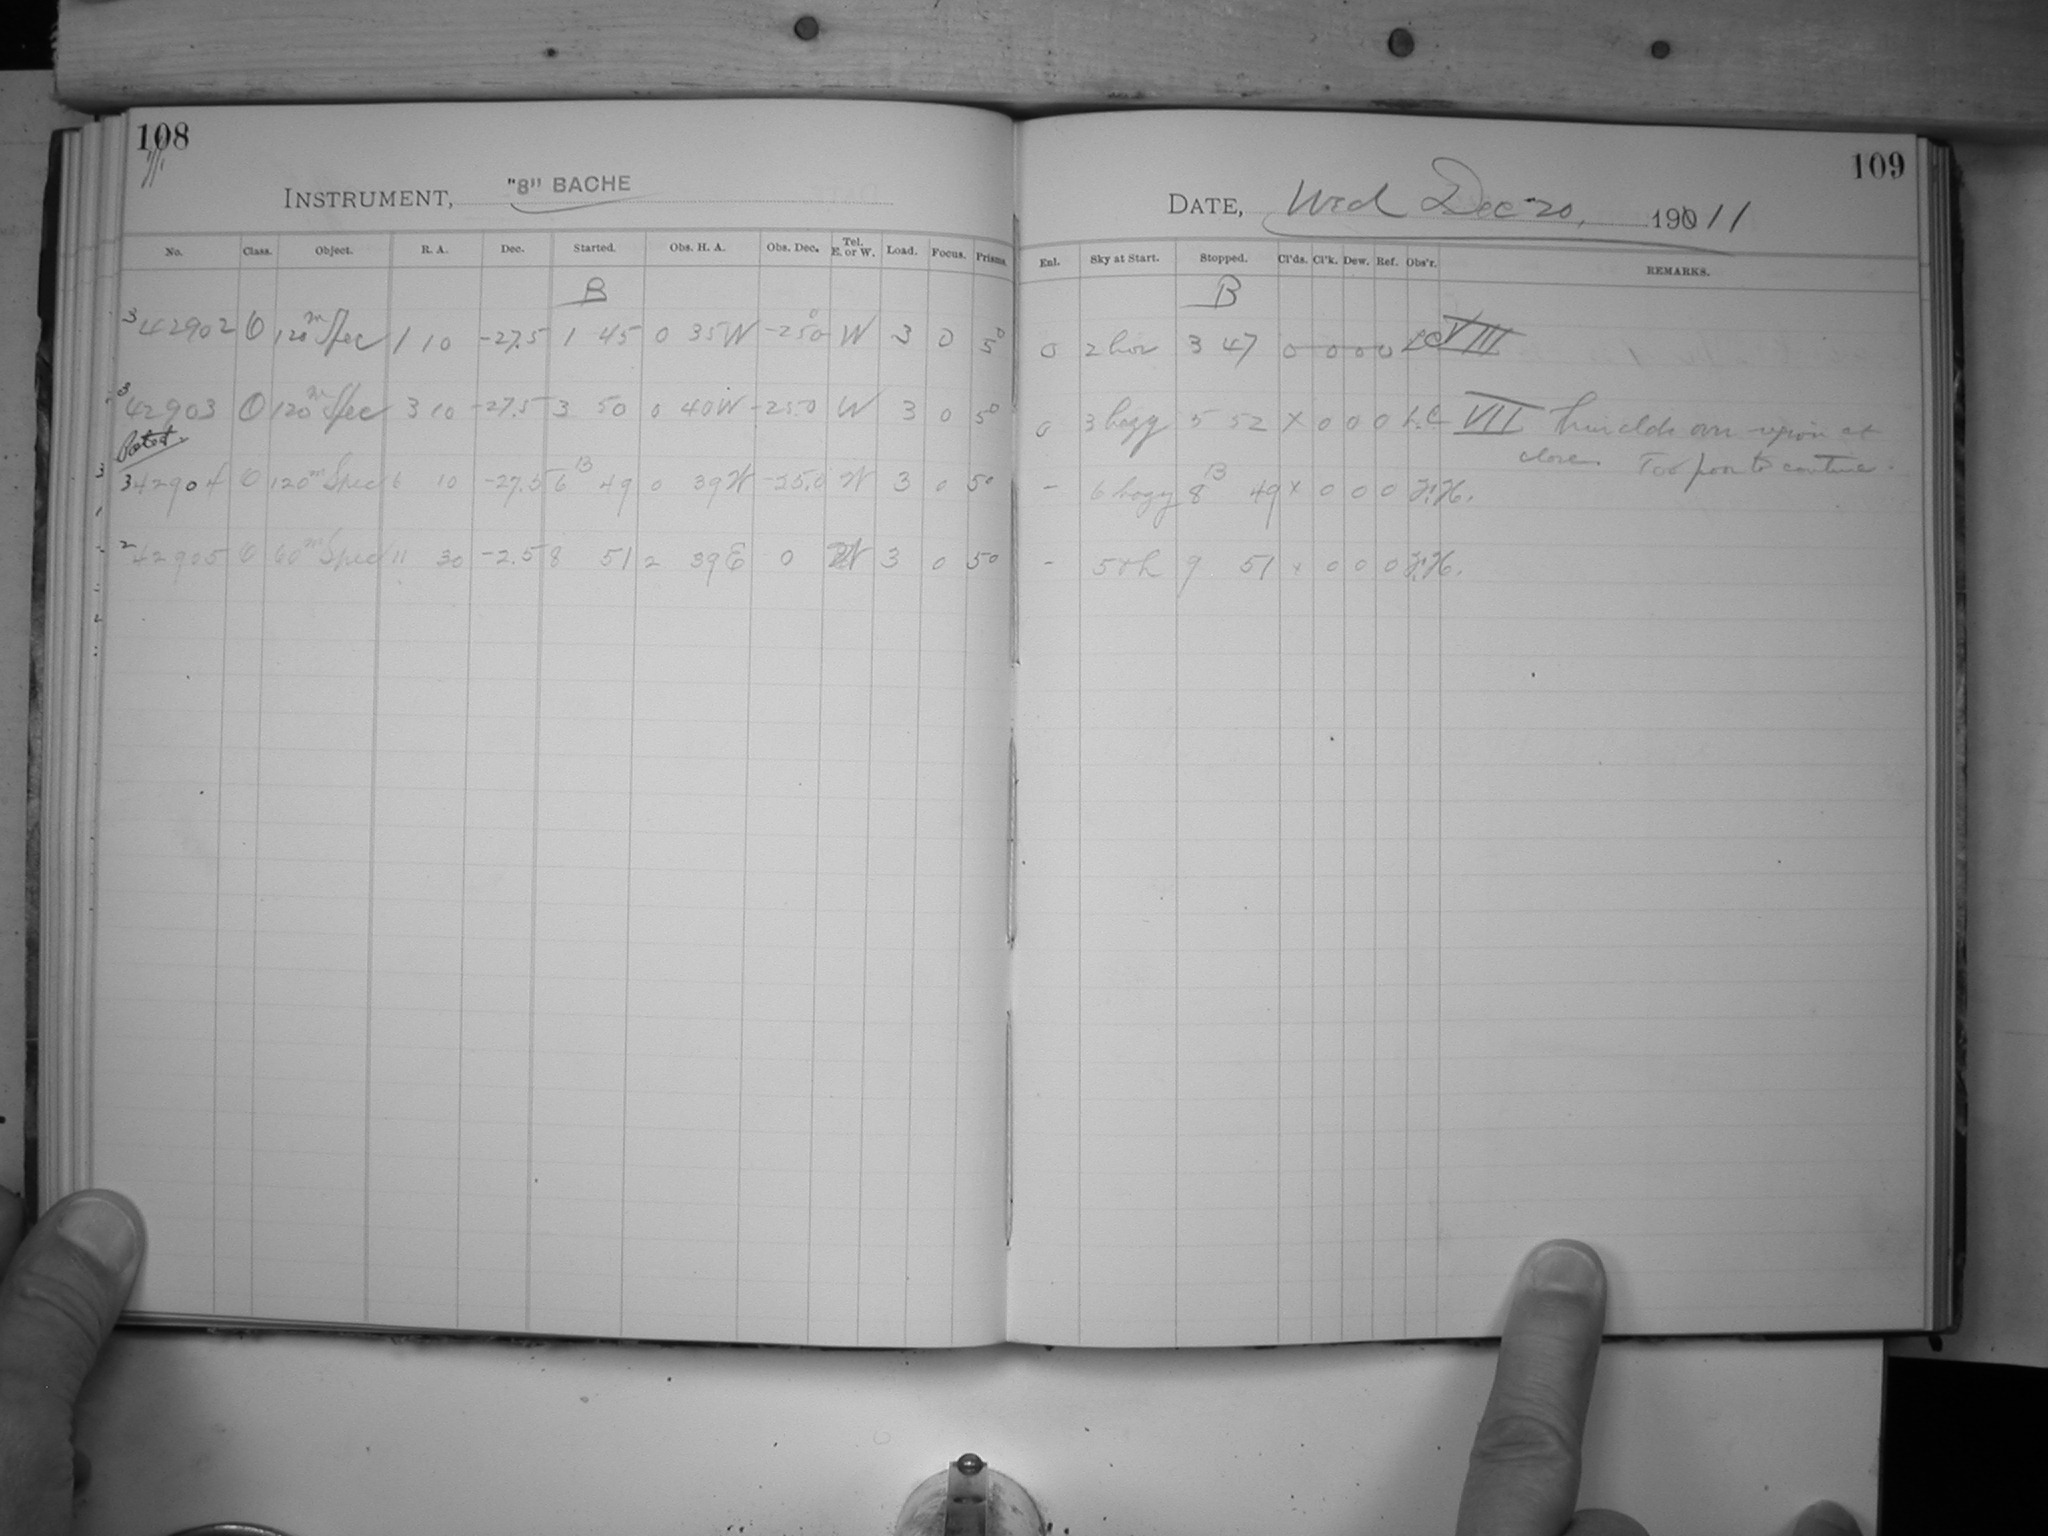 108
INSTRUMENT, "8" BACHE
No. Class. Object. R. A. Dec. Started. Obs. H. A. Obs. Dec. Tel. E. or W. Load. Focus. Prisms.
B
3 42902 O 120m Spec 1 10 -27.5 1 45 0 35W -25.0 W 3 0 5°
3 42903 O 120m Spec 3 10 -27.5 3 50 0 40W -25.0 W 3 0 5°
3 42904 O 120m Spec 6 10 -27.5 6 B 49 0 39W -25.0 W 3 0 5°
2 42905 O 60m Spec 11 30 -2.5 8 51 2 39E 0 W 3 0 5°
109
DATE, Wed Dec 20, 1911
Enl. Sky at Start. Stopped. Cl'ds. Cl'k. Dew. Ref. Obs'r. REMARKS.
B
0 2 hor 3 47 0 0 0 0 LC VIII
0 3 hazy 5 52 x 0 0 0 L.C VII Thin clds over region at
close. Too poor to continue.
- 6 hazy 8 B 49 x 0 0 0
- 9 51 x 0 0 0